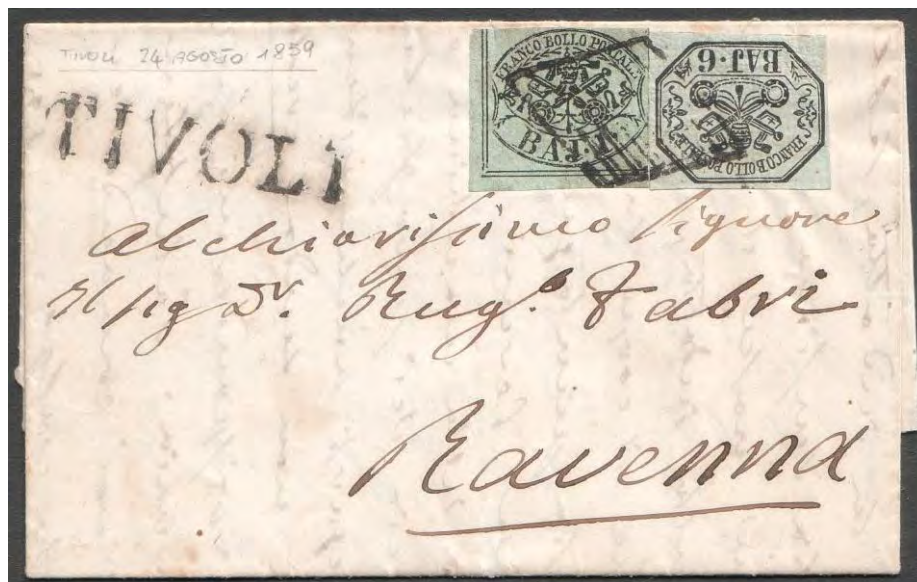 TIVOLI 24 AGOSTO 1859
TIVOLI
FRANCO BOLLO POSTALE
BAJ
BAJ·6
FRANCO BOLLO POSTALE
Al chiarissimo Signore
Il Sig Dr. Rug.o Fabri
Ravenna